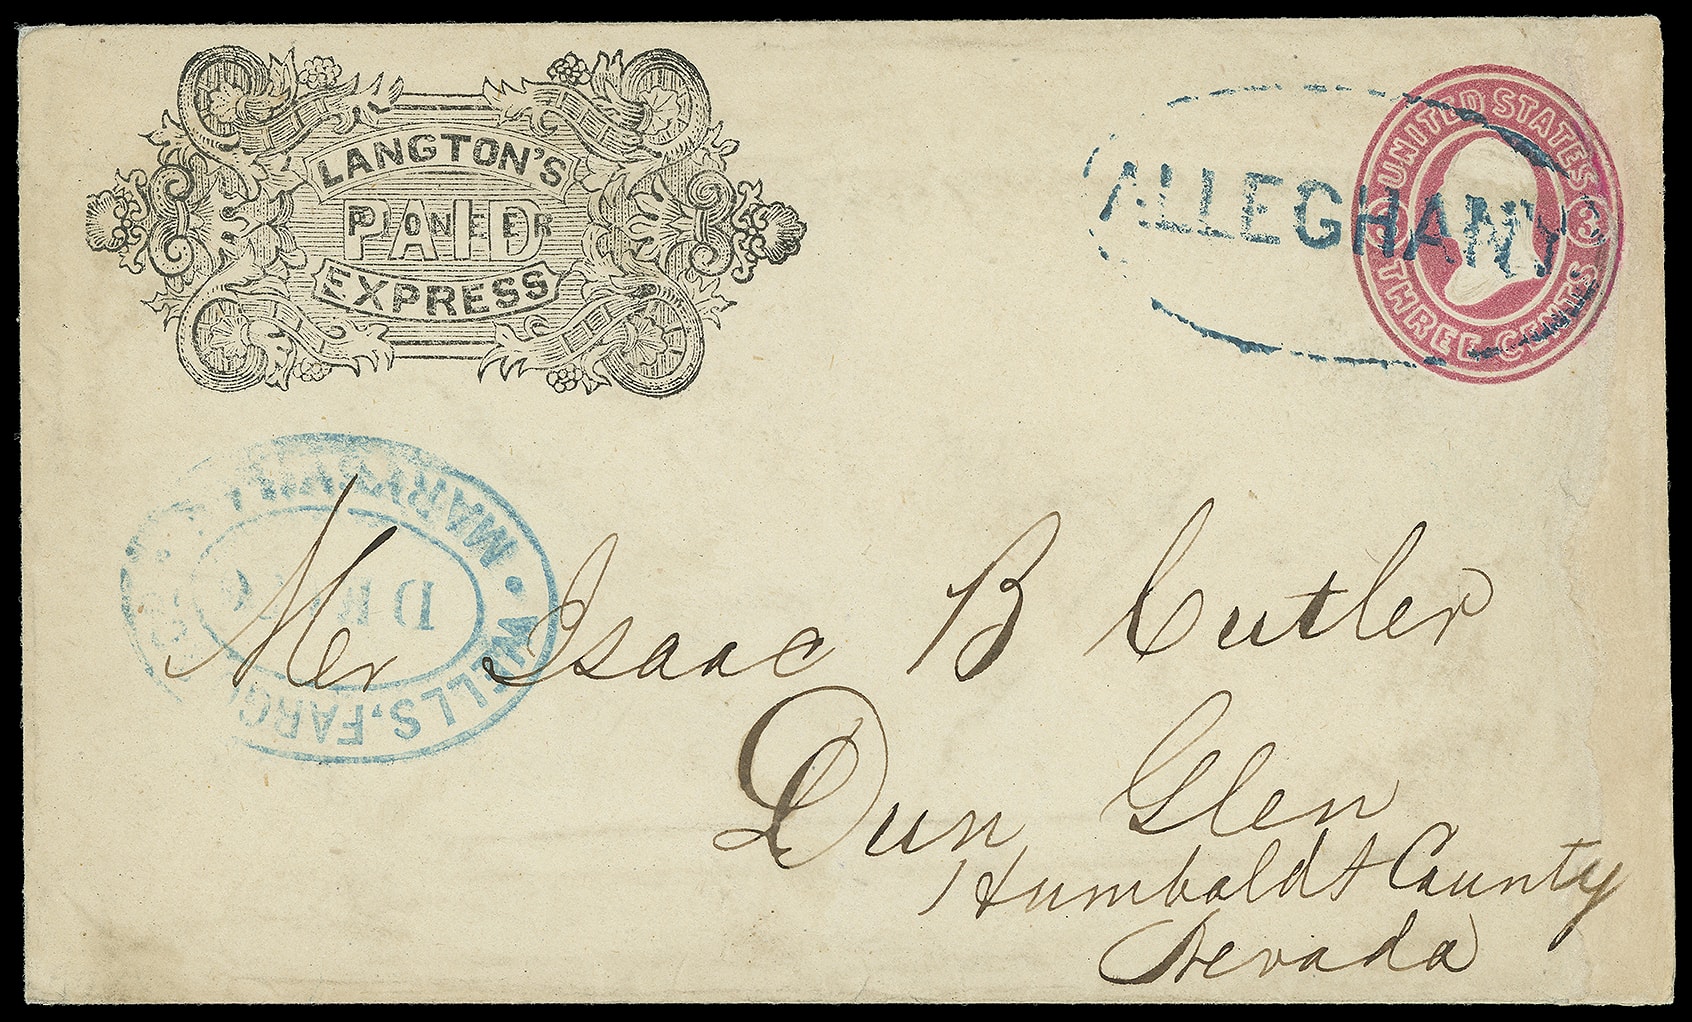 LANGTON'S
PIONEER
PAID
EXPRESS
ALLEGHANY
UNITED STATES
3 3
THREE CENTS
WELLS, FARGO
MARYSVILLE
DEC
Mr Isaac B Cutler
Dun Glen
Humboldt County
Nevada